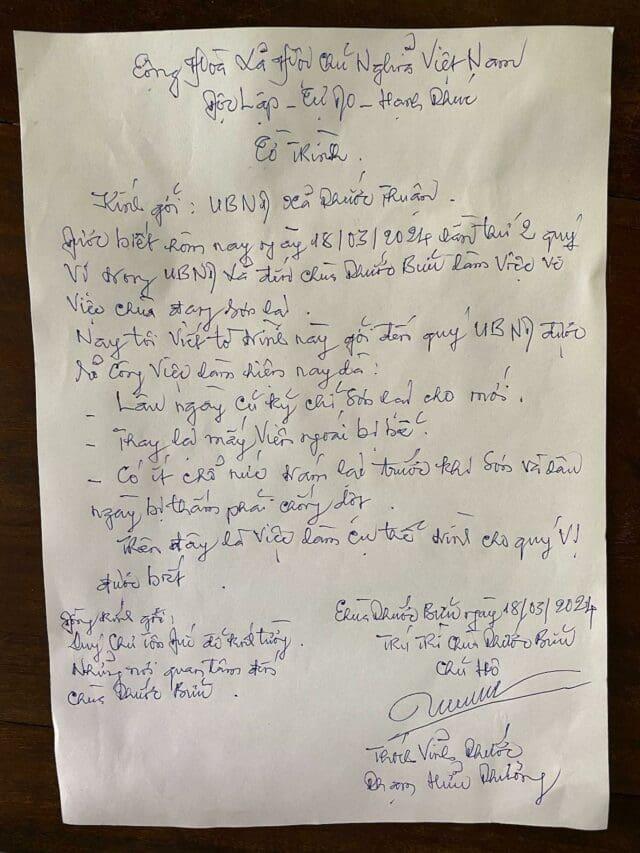 Cộng Hoà Xã Hội Chủ Nghĩa Việt Nam
Độc Lập - Tự Do - Hạnh Phúc
Tờ Trình.
Kính gởi: UBND xã Phước Thuận.
Được biết hôm nay ngày 18/03/2024 lần thứ 2 quý
Vị trong UBND xã đến chùa Phước Bửu làm việc về
việc chùa đang sơn lại.
Nay tôi viết tờ trình này gởi đến quý UBND được
rõ công việc làm hiện nay là:
- Lâu ngày cũ kỹ chỉ sơn lại cho mới.
- Thay lại mấy viên ngoái bị bể.
- Có ít chổ nức trám lại trước khi sơn và lâu
ngày bị thấm phải chống dột.
Trên đây là việc làm cụ thể trình cho quý vị
được biết.
Đồng kính gởi:
Quý Chư Tôn Đức để kính tường.
Những nơi quan tâm đến
chùa Phước Bửu.
Chùa Phước Bửu ngày 18/03/2024
Trụ Trì Chùa Phước Bửu
Chủ Hộ
Thích Vĩnh Phước
Phạm Hữu Phường